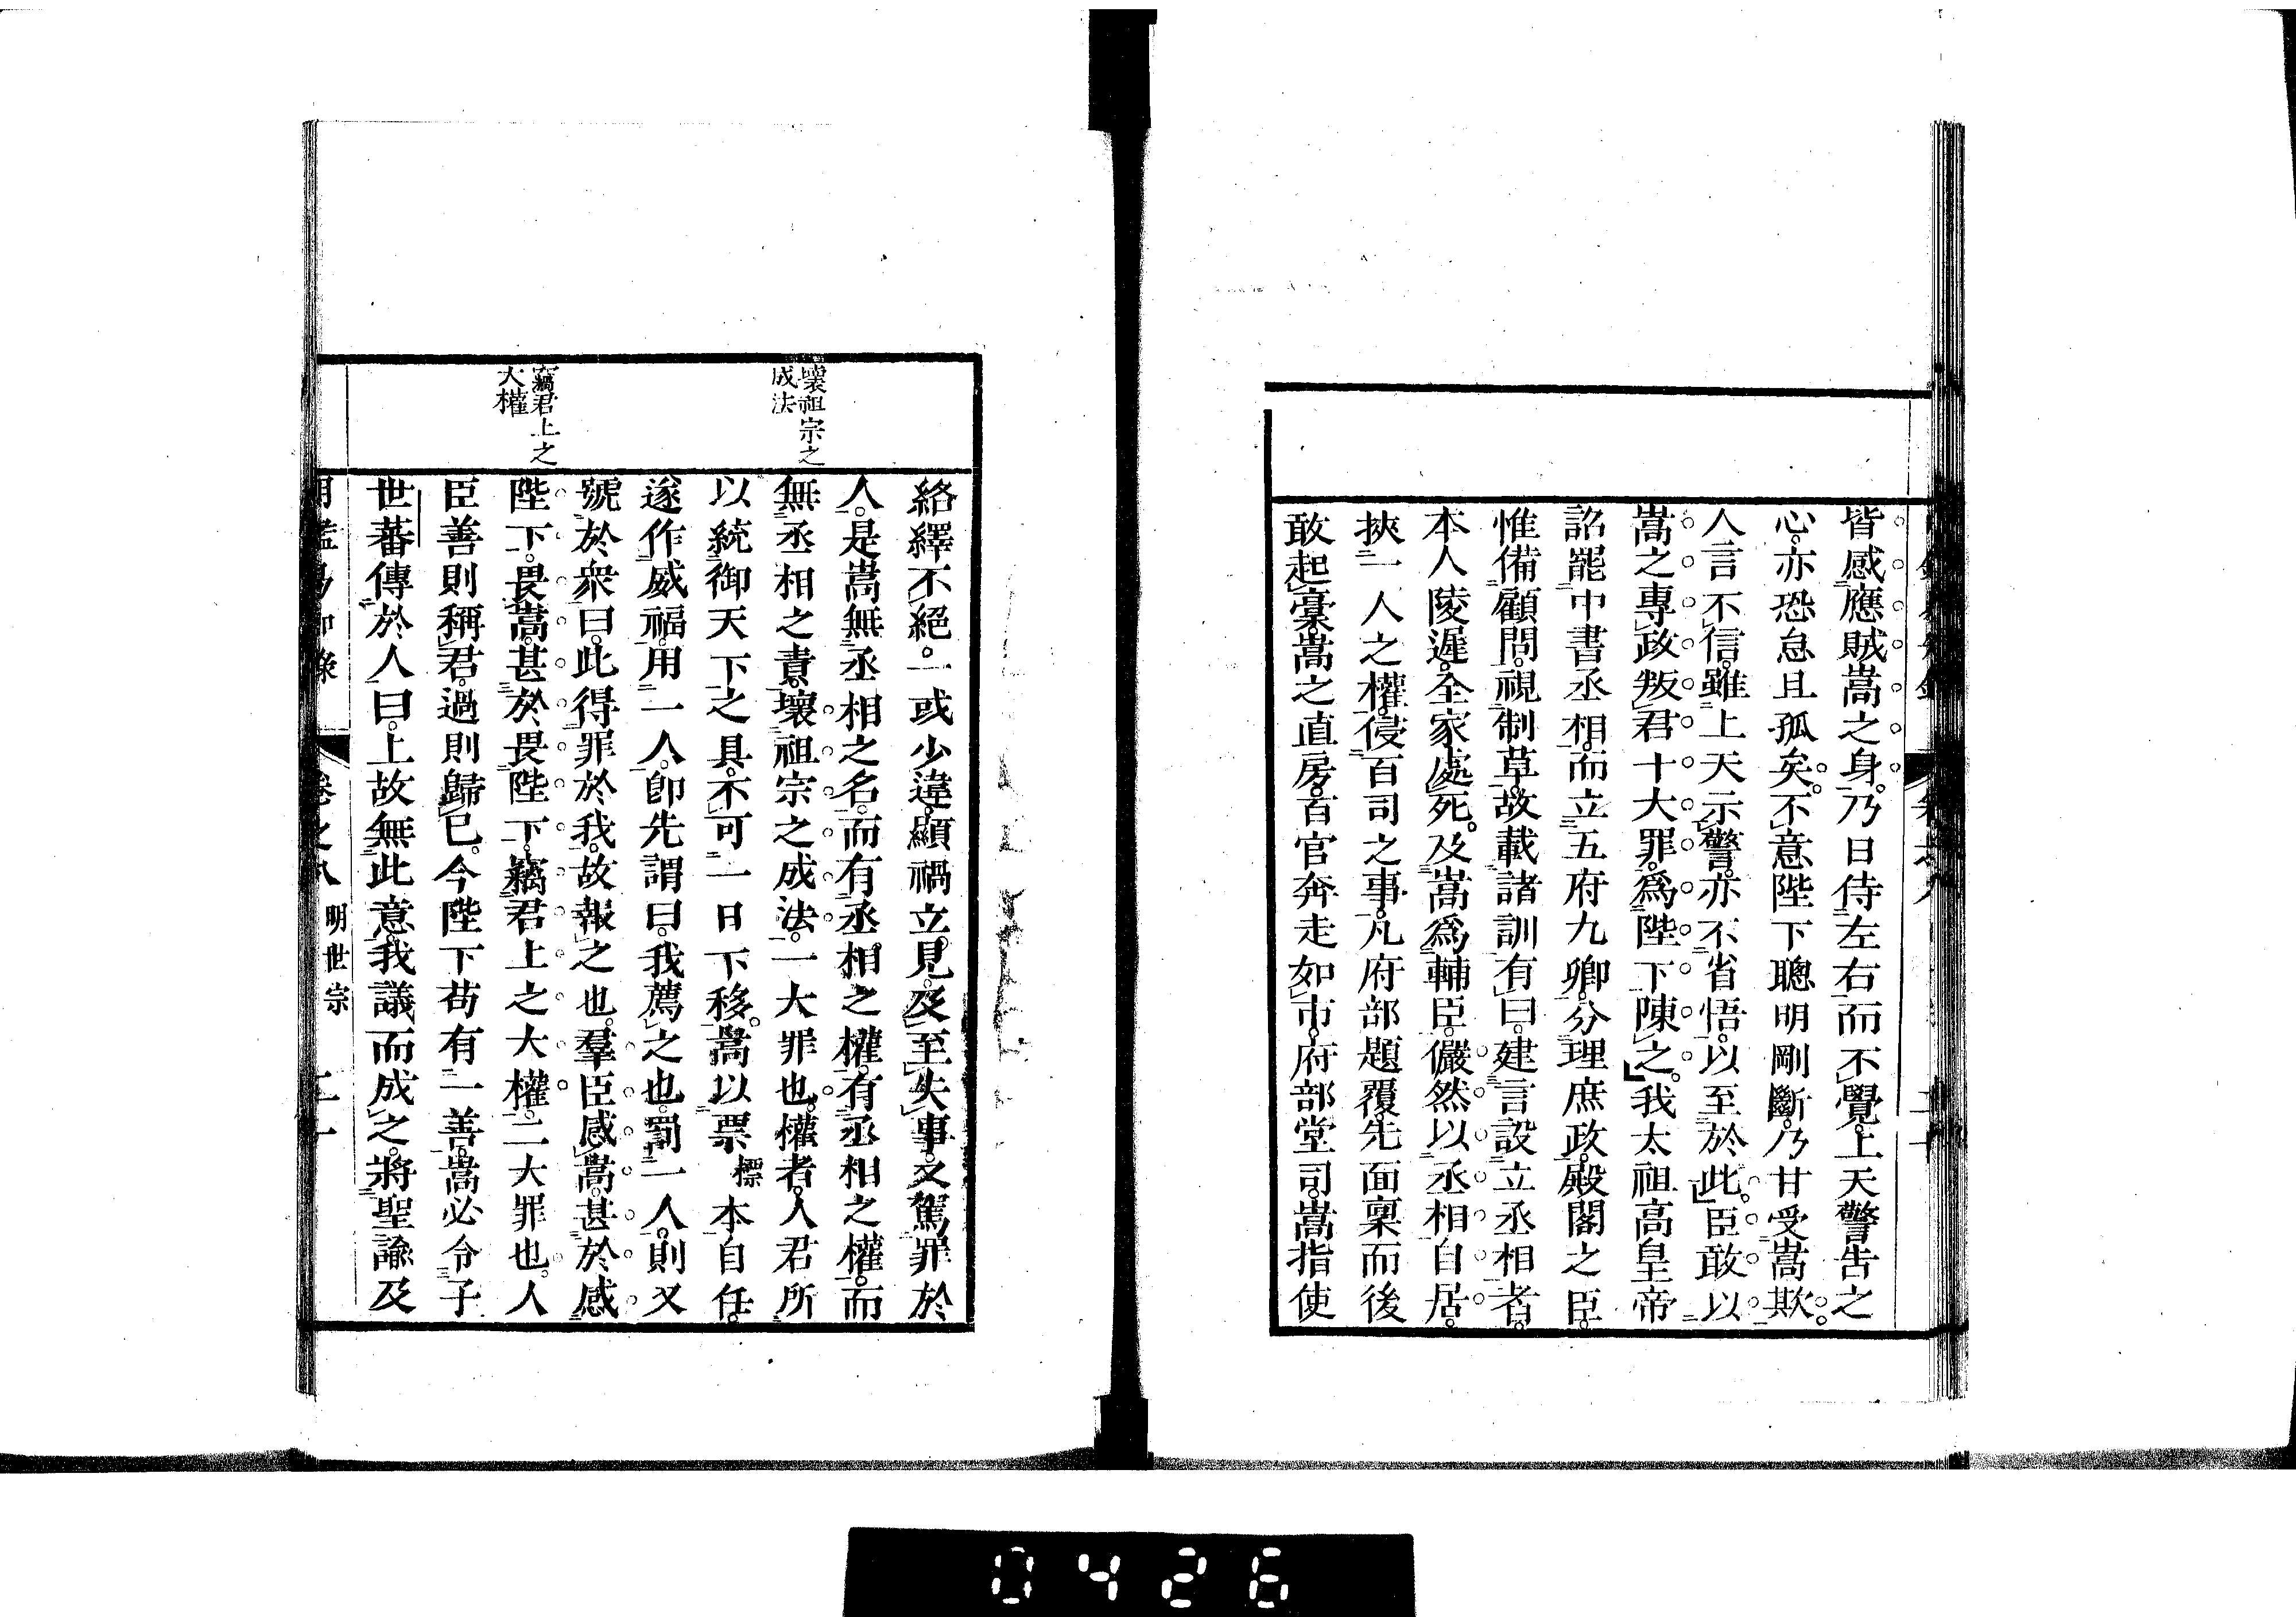 皆感應賊嵩之身。乃日侍左右而不覺。上天警告之
心。亦恐怠且孤矣。不意陛下聰明剛斷。乃甘受嵩欺。
人言不信。雖上天示警。亦不省悟。以至於此。臣敢以
嵩之專政叛君十大罪。爲陛下陳之。我太祖高皇帝
詔罷中書丞相。而立五府九卿。分理庶政。殿閣之臣。
惟備顧問。視制草。故載諸訓有曰。建言設立丞相者。
本人陵遲。全家處死。及嵩爲輔臣。儼然以丞相自居。
挾一人之權。侵百司之事。凡府部題覆。先面稟而後
敢起稾。嵩之直房。百官奔走如市。府部堂司。嵩指使
壞祖宗之
成法
竊君上之
大權
絡繹不絕。一或少違。顯禍立見。及至失事。又駕罪於
人。是嵩無丞相之名。而有丞相之權。有丞相之權。而
無丞相之責。壞祖宗之成法。一大罪也。權者。人君所
以統御天下之具。不可一日下移。嵩以票標本自任。
遂作威福。用一人。卽先謂曰。我薦之也。罰一人。則又
號於衆曰。此得罪於我。故報之也。羣臣感嵩。甚於感
陛下。畏嵩。甚於畏陛下。竊君上之大權。二大罪也。人
臣善則稱君。過則歸已。今陛下苟有一善。嵩必令子
世蕃傳於人曰。上故無此意。我議而成之。將聖諭及
卷之八 明世宗 二十一